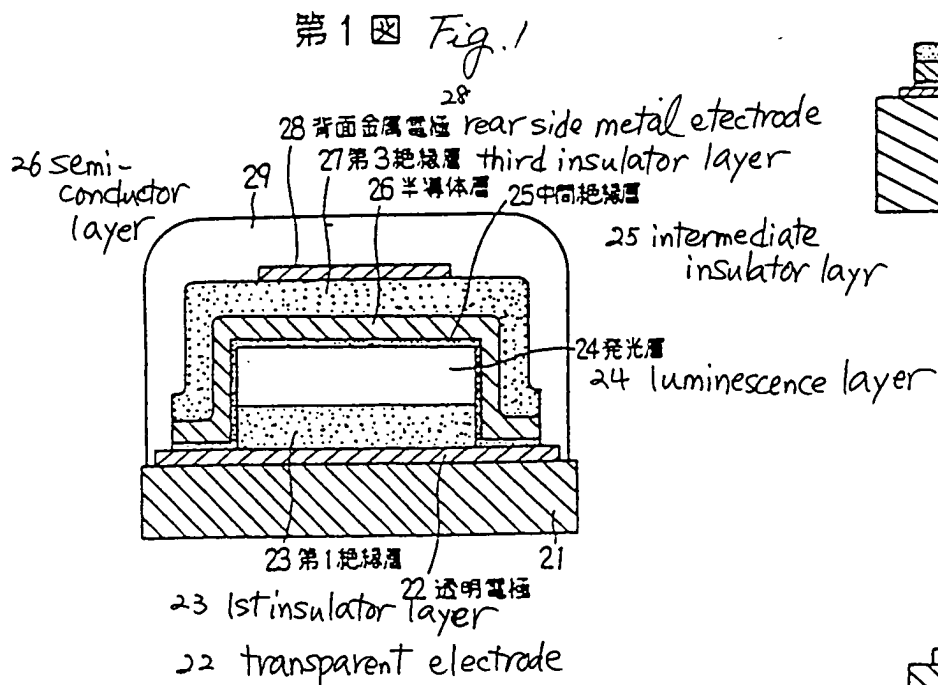 第1図 Fig.1
28
28 背面金属電極 rear side metal etectrode
27 第3絶縁層 third insulator layer
26 semi-
conductor
layer
29
26 半導体層
25 中間絶縁層
25 intermediate
insulator layr
24 発光層
24 luminescence layer
23 第1絶縁層
21
22 透明電極
23 1st insulator layer
22 transparent electrode